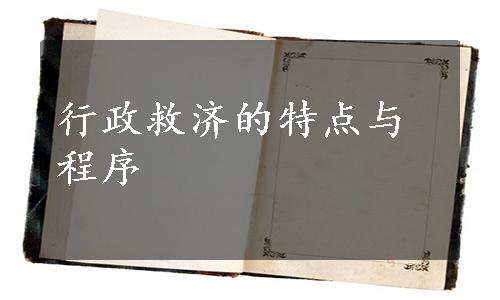 行政救济的特点与
程序